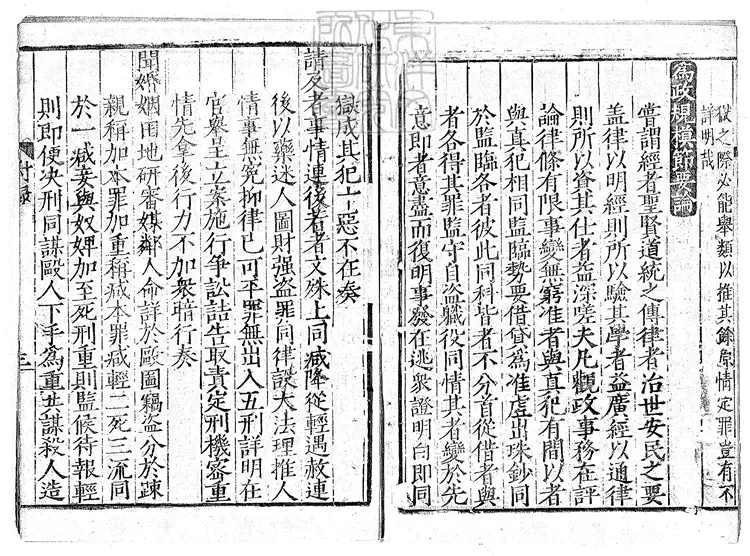 獄之際必能舉類以推其餘原情定罪豈有不
詳明哉
為政規模節要論
嘗謂經者聖賢道統之傳律者治世安民之要
盖律以明經則所以驗其學者益廣經以通律
則所以資其仕者益深嗟夫凡觀政事務在評
論律條有限事變無窮准者與真犯有間以者
與真犯相同監臨勢要借貸為准虛出珠鈔同
於監臨各者彼此同科皆者不分首從借者與
者各得其罪監守自盗職役同情其者變於先
意即者意盡而復明事發在逃衆證明白即同
獄成其犯十惡不在奏
請及者事情連後若者文殊上同减降從輕遇赦連
後以藥迷人圖財强盗罪同律設大法理推人
情事無寃抑律已可平罪無出入五刑詳明在
官舉呈立案施行爭訟詰告取責定刑機密重
情先拿後行力不加衆暗行奏
聞婚姻田地研審媒鄰人命詳於毆圖竊盗分於踈
親稱加本罪加重稱减本罪减輕二死三流同
於一减妾與奴婢加至死刑重則監候待報輕
則即便决刑同謀毆人下手為重共謀殺人造
附錄
三